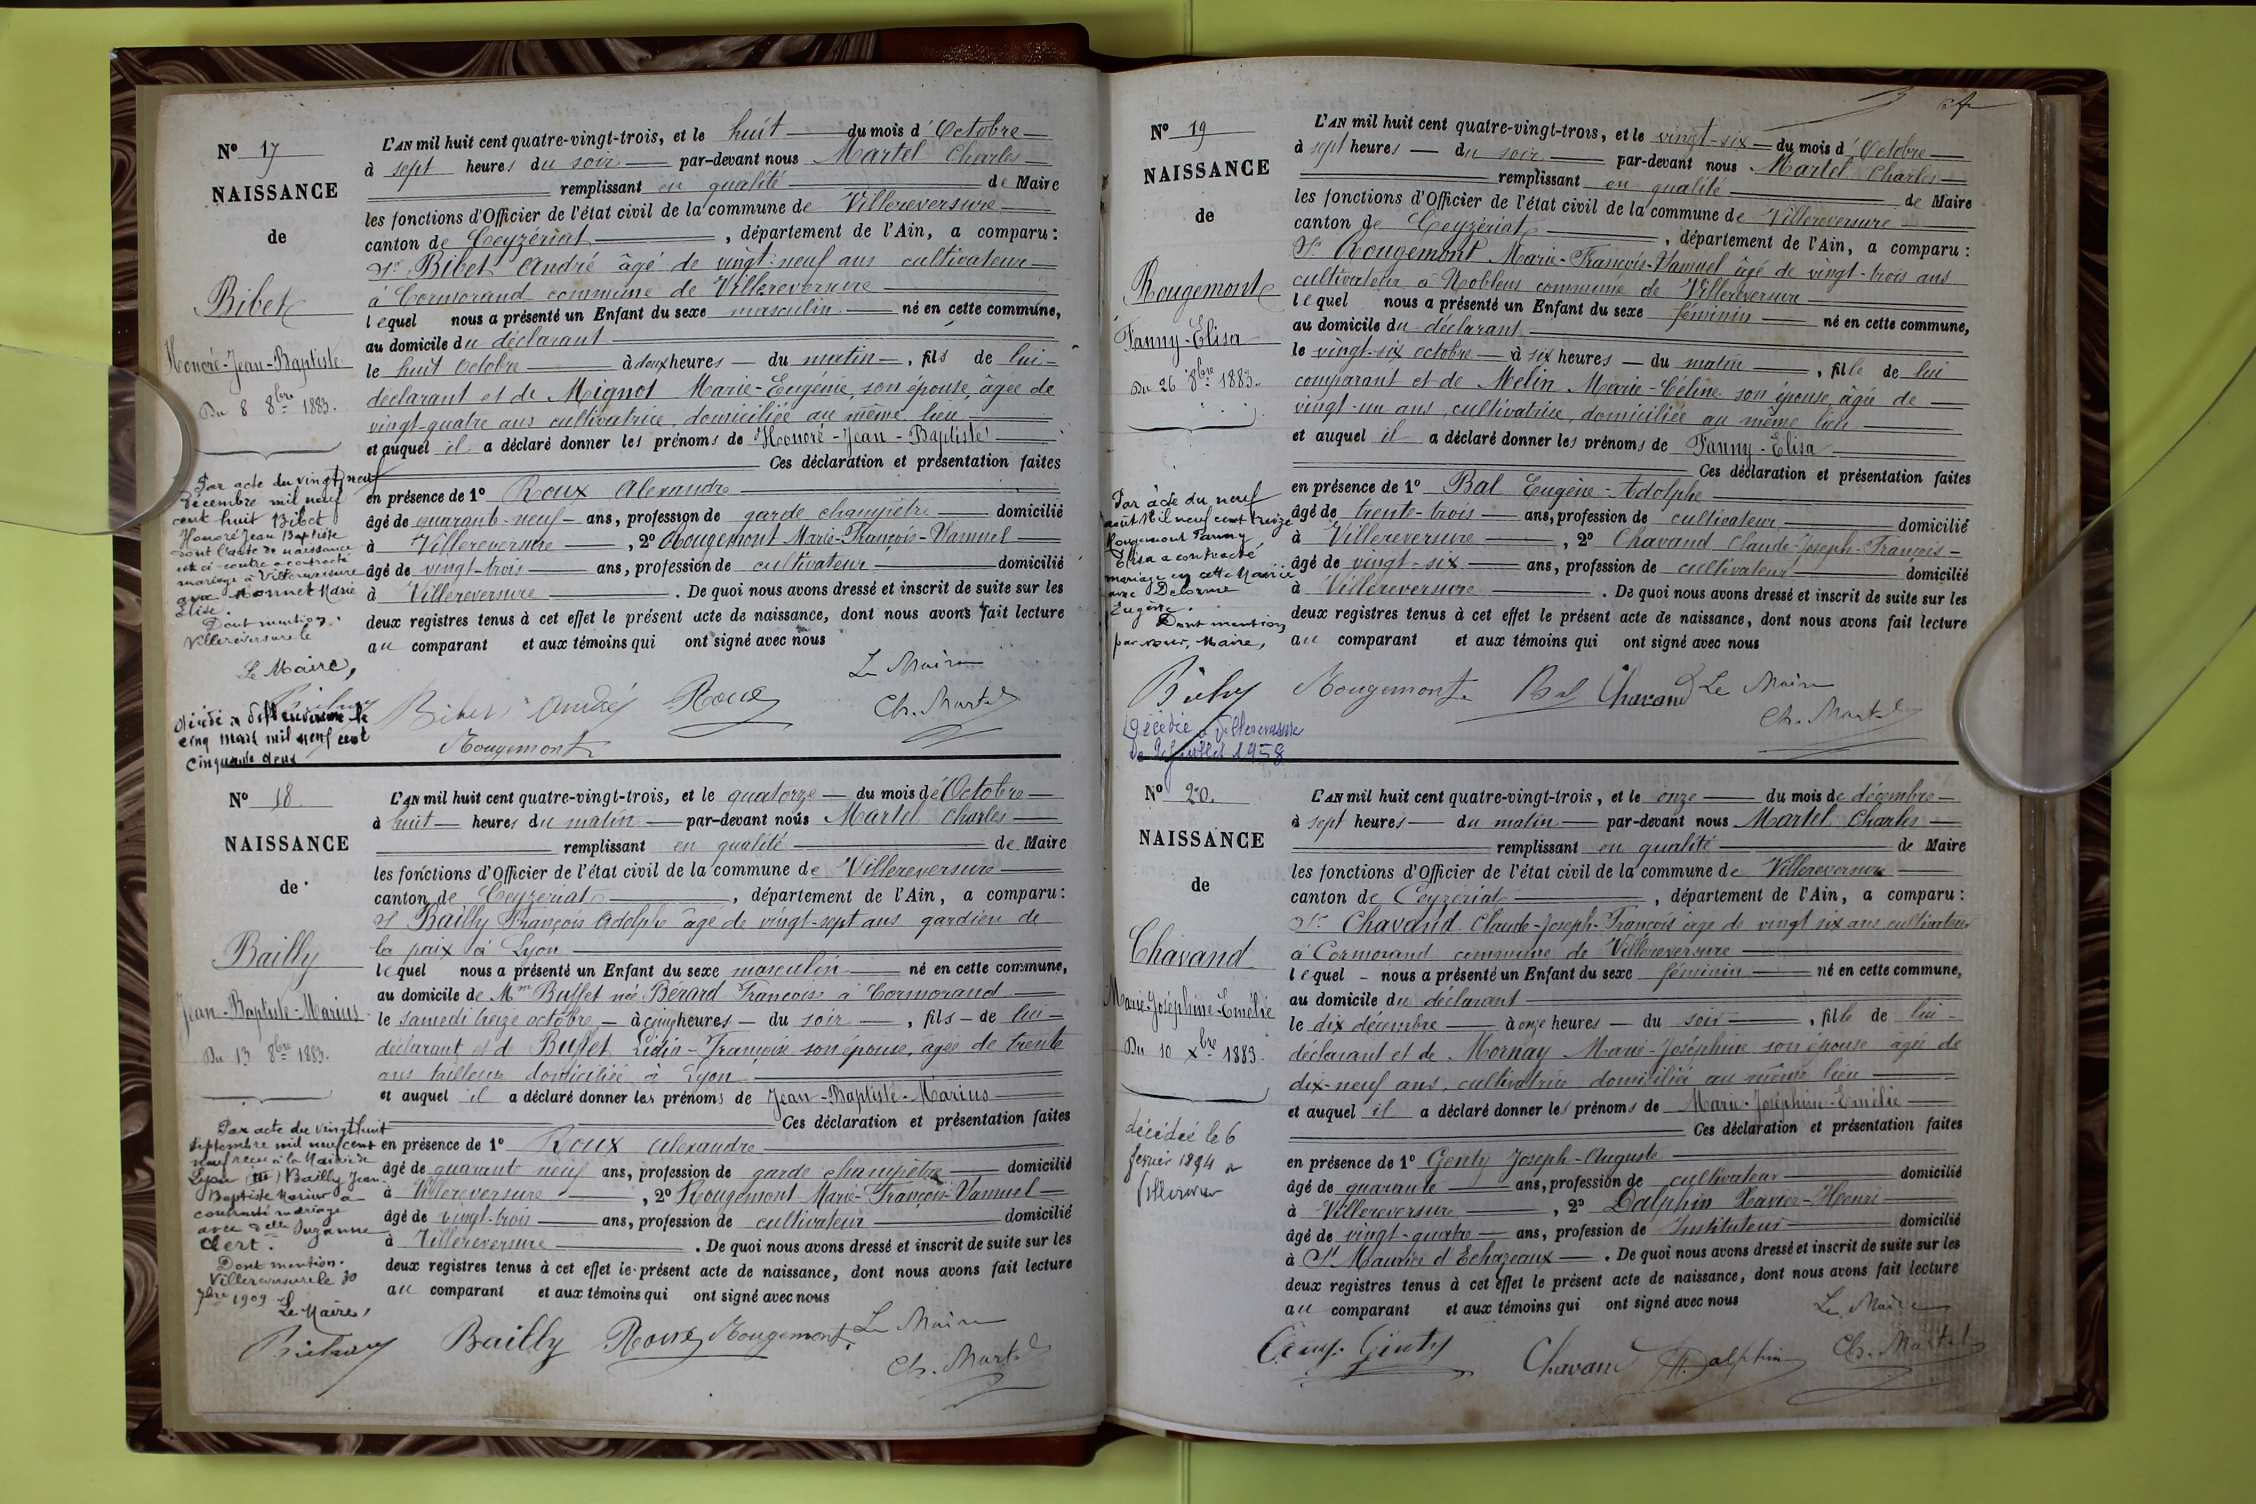 N° 17
NAISSANCE
de
Bibet
Honoré-Jean-Baptiste
Du 8 8bre 1883.
Par acte du vingt neuf
Décembre mil neuf
cent huit Bibet
Honoré Jean Baptiste
dont l'acte de naissance
est ci-contre a contracté
mariage à Villereversure
avec Monnet Marie
Elise.
Dont mention.
Villereversure le
Le Maire,
décédé à Villereversure le
cinq mars mil neuf cent
cinquante deux
L'AN mil huit cent quatre-vingt-trois, et le huit du mois d'Octobre
à sept heures du soir par-devant nous Martel Charles
remplissant en qualité de Maire
les fonctions d'Officier de l'état civil de la commune de Villereversure
canton de Ceyzériat, département de l'Ain, a comparu:
Sr Bibet André âgé de vingt-neuf ans cultivateur
à Cormorand commune de Villereversure
lequel nous a présenté un Enfant du sexe masculin né en cette commune,
au domicile du déclarant
le huit Octobre à deux heures du matin, fils de lui
déclarant et de Mignot Marie-Eugénie, son épouse, âgée de
vingt-quatre ans cultivatrice, domiciliée au même lieu
et auquel il a déclaré donner les prénoms de Honoré-Jean-Baptiste
Ces déclaration et présentation faites
en présence de 1° Roux Alexandre
âgé de quarante-neuf ans, profession de garde champêtre domicilié
à Villereversure, 2° Rougemont Marie-François-Vamuel
âgé de vingt-trois ans, profession de cultivateur domicilié
à Villereversure. De quoi nous avons dressé et inscrit de suite sur les
deux registres tenus à cet effet le présent acte de naissance, dont nous avons fait lecture
au comparant et aux témoins qui ont signé avec nous
Le Maire
Bibet André Roux Ch. Martel
Rougemont
N° 18
NAISSANCE
de
Bailly
Jean-Baptiste-Marius
Du 13 8bre 1883.
Par acte du vingt huit
septembre mil neuf cent
neuf reçu à la Mairie de
Lyon (III) Bailly Jean
Baptiste Marius a
contracté mariage
avec delle Suzanne
Clert.
Dont mention.
Villereversure le 30
7bre 1909
Le Maire,
L'AN mil huit cent quatre-vingt-trois, et le quatorze du mois d'Octobre
à huit heures du matin par-devant nous Martel Charles
remplissant en qualité de Maire
les fonctions d'Officier de l'état civil de la commune de Villereversure
canton de Ceyzériat, département de l'Ain, a comparu:
Sr Bailly François Adolphe âgé de vingt-sept ans gardien de
la paix à Lyon
lequel nous a présenté un Enfant du sexe masculin né en cette commune,
au domicile de Mme Buffet née Bérard Françoise à Cormorand
le samedi treize octobre à cinq heures du soir, fils de lui
déclarant et de Buffet Lidia-Françoise son épouse, âgée de trente
ans tailleuse domiciliée à Lyon
et auquel il a déclaré donner les prénoms de Jean-Baptiste-Marius
Ces déclaration et présentation faites
en présence de 1° Roux Alexandre
âgé de quarante neuf ans, profession de garde champêtre domicilié
à Villereversure, 2° Rougemont Marie-François-Vamuel
âgé de vingt-trois ans, profession de cultivateur domicilié
à Villereversure. De quoi nous avons dressé et inscrit de suite sur les
deux registres tenus à cet effet le présent acte de naissance, dont nous avons fait lecture
au comparant et aux témoins qui ont signé avec nous
Bailly Roux Rougemont Le Maire
Ch. Martel
N° 19
NAISSANCE
de
Rougemont
Fanny-Elisa
Du 26 8bre 1883.
Par acte du neuf
août Mil neuf cent treize
Rougemont Fanny
Elisa a contracté
mariage en cette Mairie
avec Delorme
Eugène.
Dont mention
par nous, Maire,
Décédée à Villereversure
L'AN mil huit cent quatre-vingt-trois, et le vingt-six du mois d'Octobre
à sept heures du soir par-devant nous Martel Charles
remplissant en qualité de Maire
les fonctions d'Officier de l'état civil de la commune de Villereversure
canton de Ceyzériat, département de l'Ain, a comparu:
Sr Rougemont Marie-François-Vamuel âgé de vingt-trois ans
cultivateur à Noblens commune de Villereversure
lequel nous a présenté un Enfant du sexe féminin né en cette commune,
au domicile du déclarant
le vingt-six octobre à six heures du matin, fille de lui
comparant et de Melin Marie-Céline son épouse âgée de
vingt-un ans, cultivatrice, domiciliée au même lieu
et auquel il a déclaré donner les prénoms de Fanny-Elisa
Ces déclaration et présentation faites
en présence de 1° Bal Eugène-Adolphe
âgé de trente-trois ans, profession de cultivateur domicilié
à Villereversure, 2° Chavand Claude-Joseph-François
âgé de vingt-six ans, profession de cultivateur domicilié
à Villereversure. De quoi nous avons dressé et inscrit de suite sur les
deux registres tenus à cet effet le présent acte de naissance, dont nous avons fait lecture
au comparant et aux témoins qui ont signé avec nous
Rougemont Bal Chavand Le Maire
Ch. Martel
N° 20.
NAISSANCE
de
Chavand
Marie-Joséphine-Emélie
Du 10 Xbre 1883.
décédée le 6
fevrier 1894 à
L'AN mil huit cent quatre-vingt-trois, et le onze du mois de décembre
à sept heures du matin par-devant nous Martel Charles
remplissant en qualité de Maire
les fonctions d'Officier de l'état civil de la commune de Villereversure
canton de Ceyzériat, département de l'Ain, a comparu:
Sr Chavand Claude-Joseph-François âgé de vingt six ans cultivateur
à Cormorand commune de Villereversure
lequel nous a présenté un Enfant du sexe féminin né en cette commune,
au domicile du déclarant
le dix décembre à onze heures du soir, fille de lui
déclarant et de Mornay Marie-Joséphine son épouse âgée de
dix-neuf ans, cultivatrice domiciliée au même lieu
et auquel il a déclaré donner les prénoms de Marie-Joséphine-Emélie
Ces déclaration et présentation faites
en présence de 1° Genty Joseph-Auguste
âgé de quarante ans, profession de cultivateur domicilié
à Villereversure, 2° Dalphin Xavier-Henri
âgé de vingt-quatre ans, profession de Instituteur domicilié
à St Maurice d'Echazeaux. De quoi nous avons dressé et inscrit de suite sur les
deux registres tenus à cet effet le présent acte de naissance, dont nous avons fait lecture
au comparant et aux témoins qui ont signé avec nous
Le Maire
Genty Chavand H. Dalphin Ch. Martel